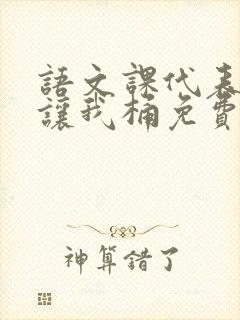 語文課代表
讓我桶免費
神算錯了